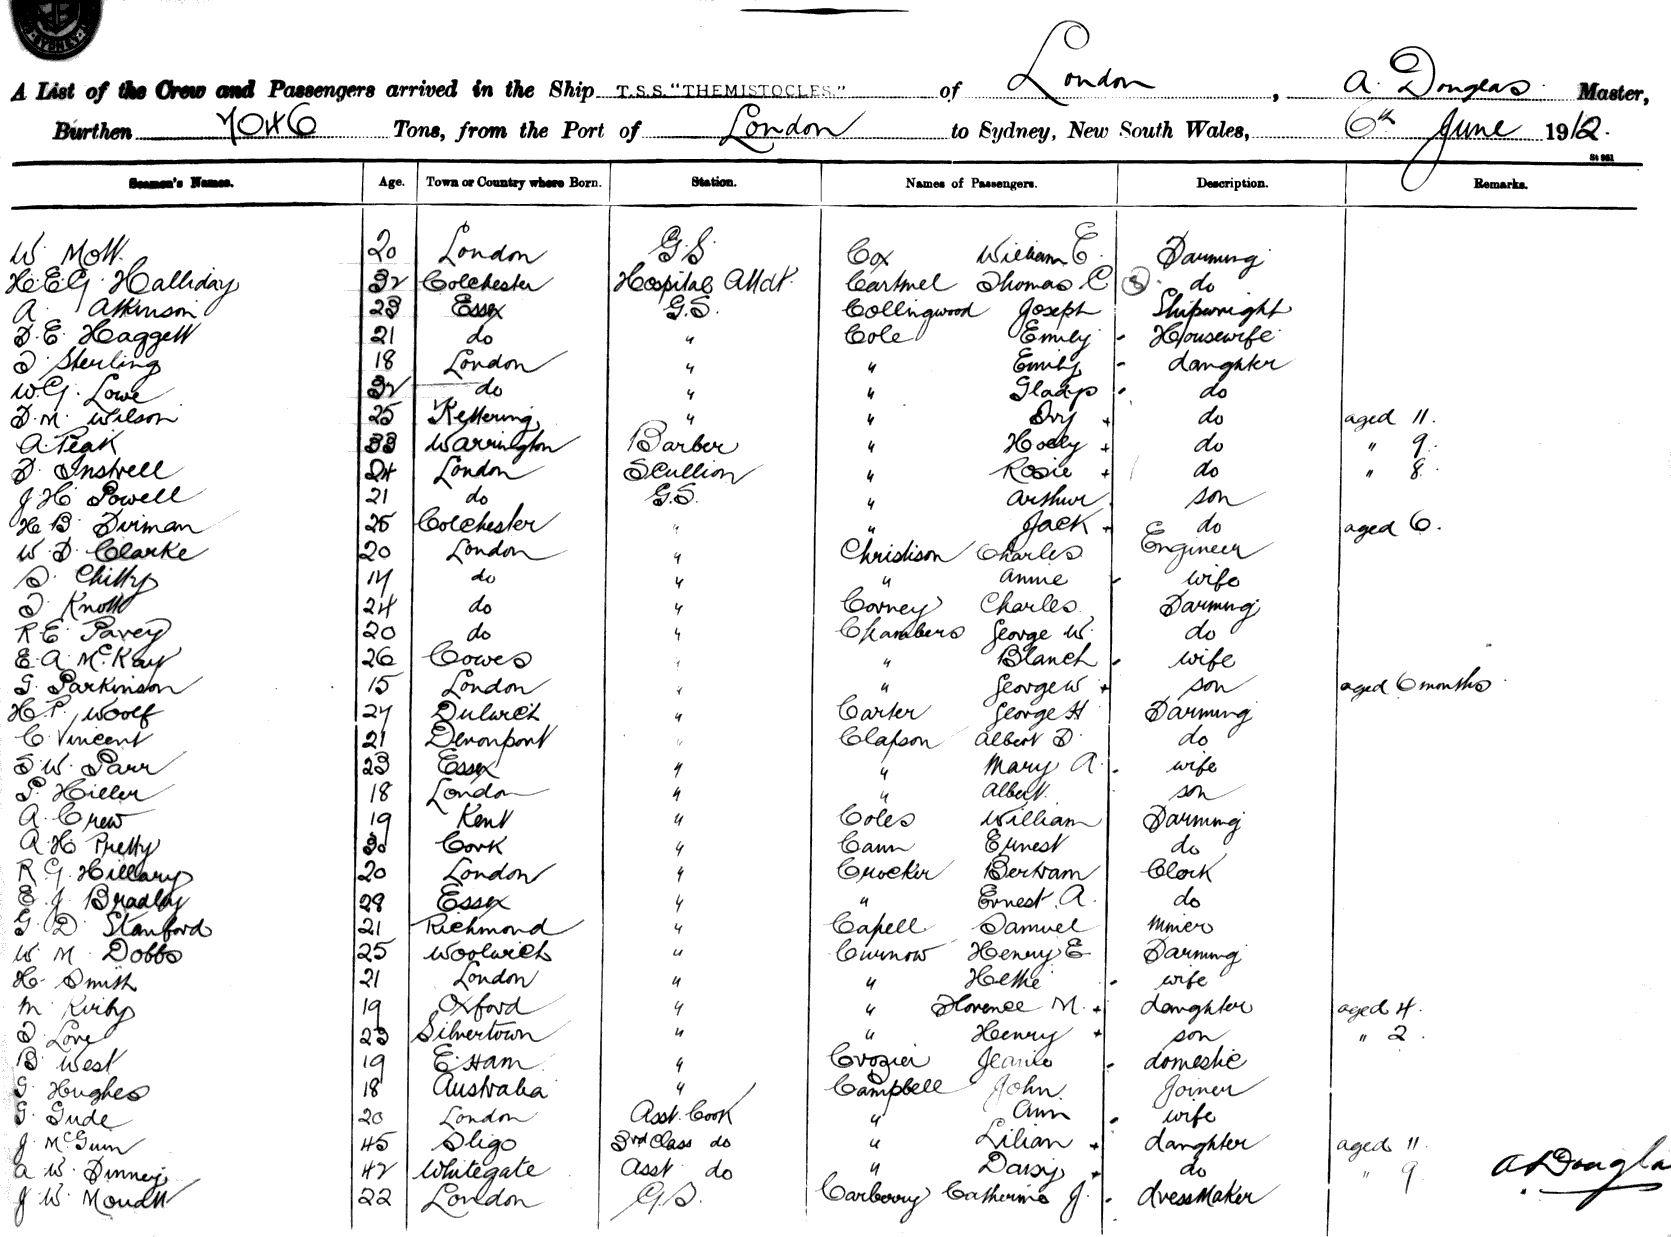 SYDNEY
A List of the Crew and Passengers arrived in the Ship T.S.S. "THEMISTOCLES." of London, A. Douglas Master,
Burthen 7046 Tons, from the Port of London to Sydney, New South Wales, 6th June 1912.
St 961
Seamen's Names. Age. Town or Country where Born. Station. Names of Passengers. Description. Remarks.
W. Mott 20 London G.S. Cox William E. Farming
H.E.G. Halliday 32 Colchester Hospital Attdt. Cartmel Thomas C do
A. Atkinson 23 Essex G.S. Collingwood Joseph Shipwright
D.E. Haggett 21 do " Cole Emily - Housewife
Sterling 18 London " " Emily - daughter
W.G. Lowe 32 do " " Gladys - do
D.M. Wilson 25 Kettering " " Ivy + do aged 11.
A. Peak 33 Warrington Barber " + do " 9.
24 London Scullion " Rosie + do " 8.
J H Powell 21 do G.S. " Arthur son
H B 25 Colchester " " Jack + do aged 6.
W. D. Clarke 20 London " Christison Charles Engineer
Chitty 14 do " " Annie - wife
Knott 24 do " Corney Charles Farming
R E Pavey 20 do " Chambers George W. do
E. A. McKay 26 Cowes " " Blanch - wife
G. Parkinson 15 London " " George W + son aged 6 months
H. P. Woolf 24 Dulwich " Carter George H Farming
C. Vincent 21 Devonport " Clapson Albert D. do
W. Parr 23 Essex " " Mary A. - wife
Hiller 18 London " " Albert son
A. Crew 19 Kent " Coles William Farming
A. H. Pretty 30 Cork " Cann Ernest do
R. G. Hillary 20 London " Crocker Bertram Clerk
E. J. Bradley 29 Essex " " Ernest A. do
G. D. Stanford 21 Richmond " Capell Samuel Miner
W. M. Dobbs 25 Woolwich " Curnow Henry E Farming
H. Smith 21 London " " Hettie - wife
M. Kirby 19 Oxford " " Florence M. + daughter aged 4.
Love 23 Silvertown " " Henry + son " 2.
B. West 19 E. Ham " Crozier Jeanie - domestic
G. Hughes 18 Australia " Campbell John Joiner
G. Gude 20 London Asst. Cook " Ann - wife
J. McGunn 45 Sligo 3rd Class do " Lilian + daughter aged 11.
A. W. Dinney 42 Whitegate Asst do " Daisy + do " 9
J. W. 22 London G.S. Carberry Catherine J. - dressmaker
A. Douglas